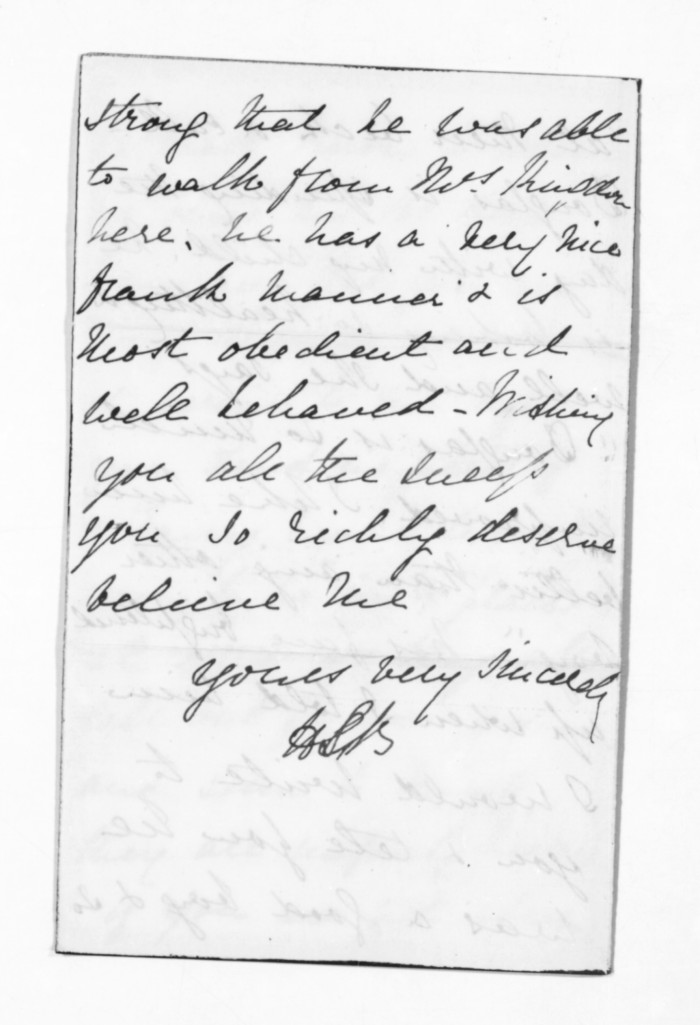 strong that he was able
to walk from Mrs
here. he has a very nice
frank manner & is
most obedient and
well behaved - Wishing
you all the success
you so richly deserve
believe me
yours very sincerely